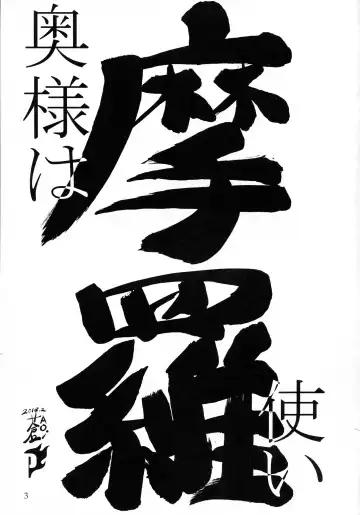 奥様は
摩羅
使い
2014.2
蒼
P
3